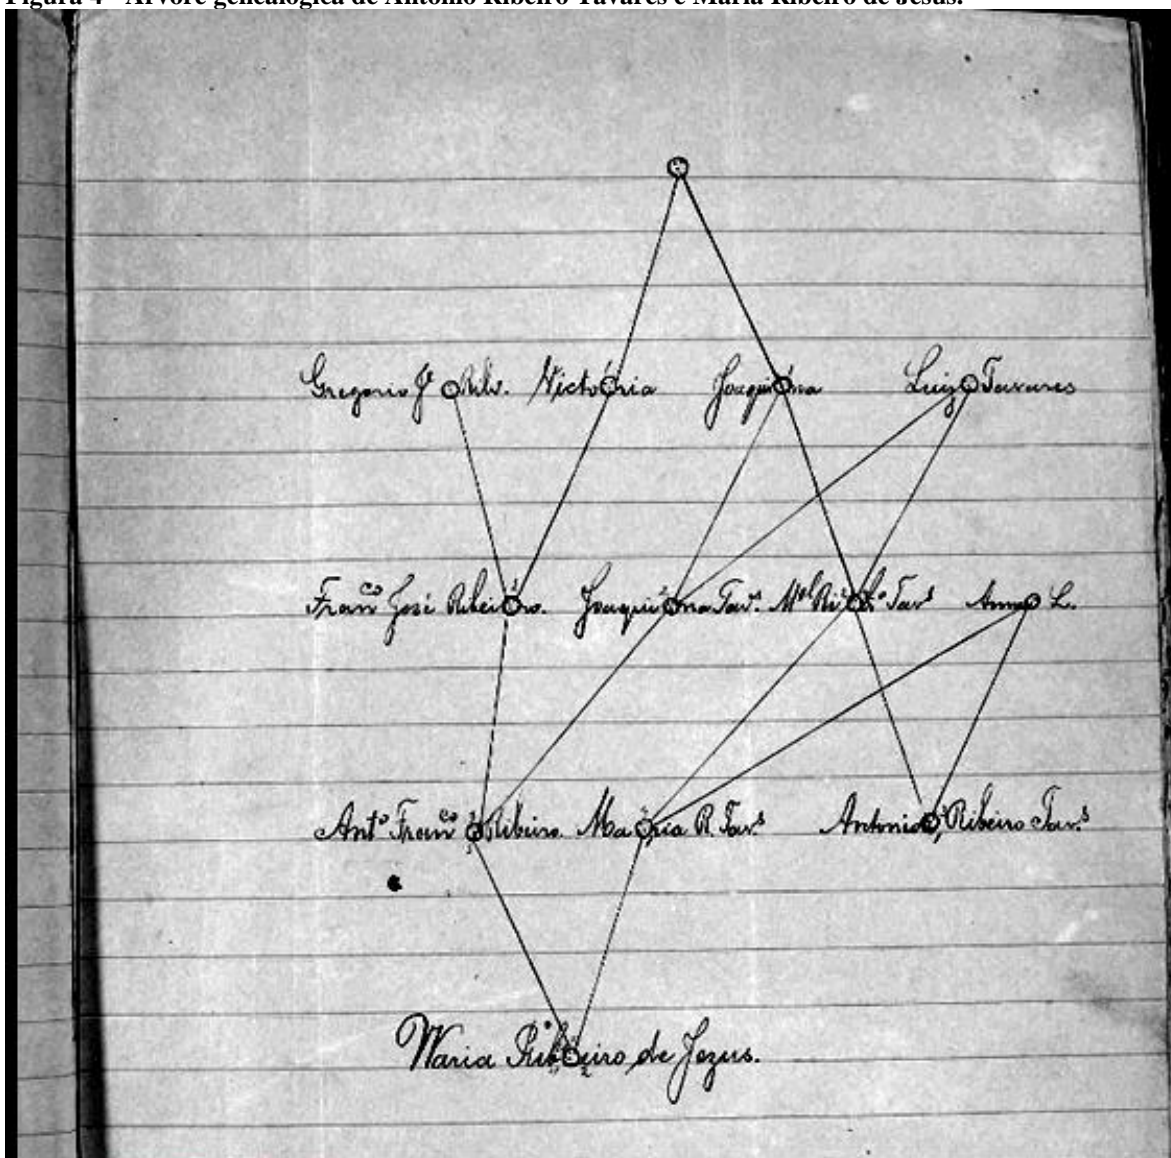 Figura 4 - Árvore genealógica de Antônio Ribeiro Tavares e Maria Ribeiro de Jesus.
Gregorio Je Rib. Victória Joaquina Luiz Tavares
Franco José Ribeiro. Joaquina Tavs. Mel Riro Tavs Anna L.
Anto Franco Ribeiro Maria R. Tavs Antonio Ribeiro Tavs
Maria Ribeiro de Jezus.